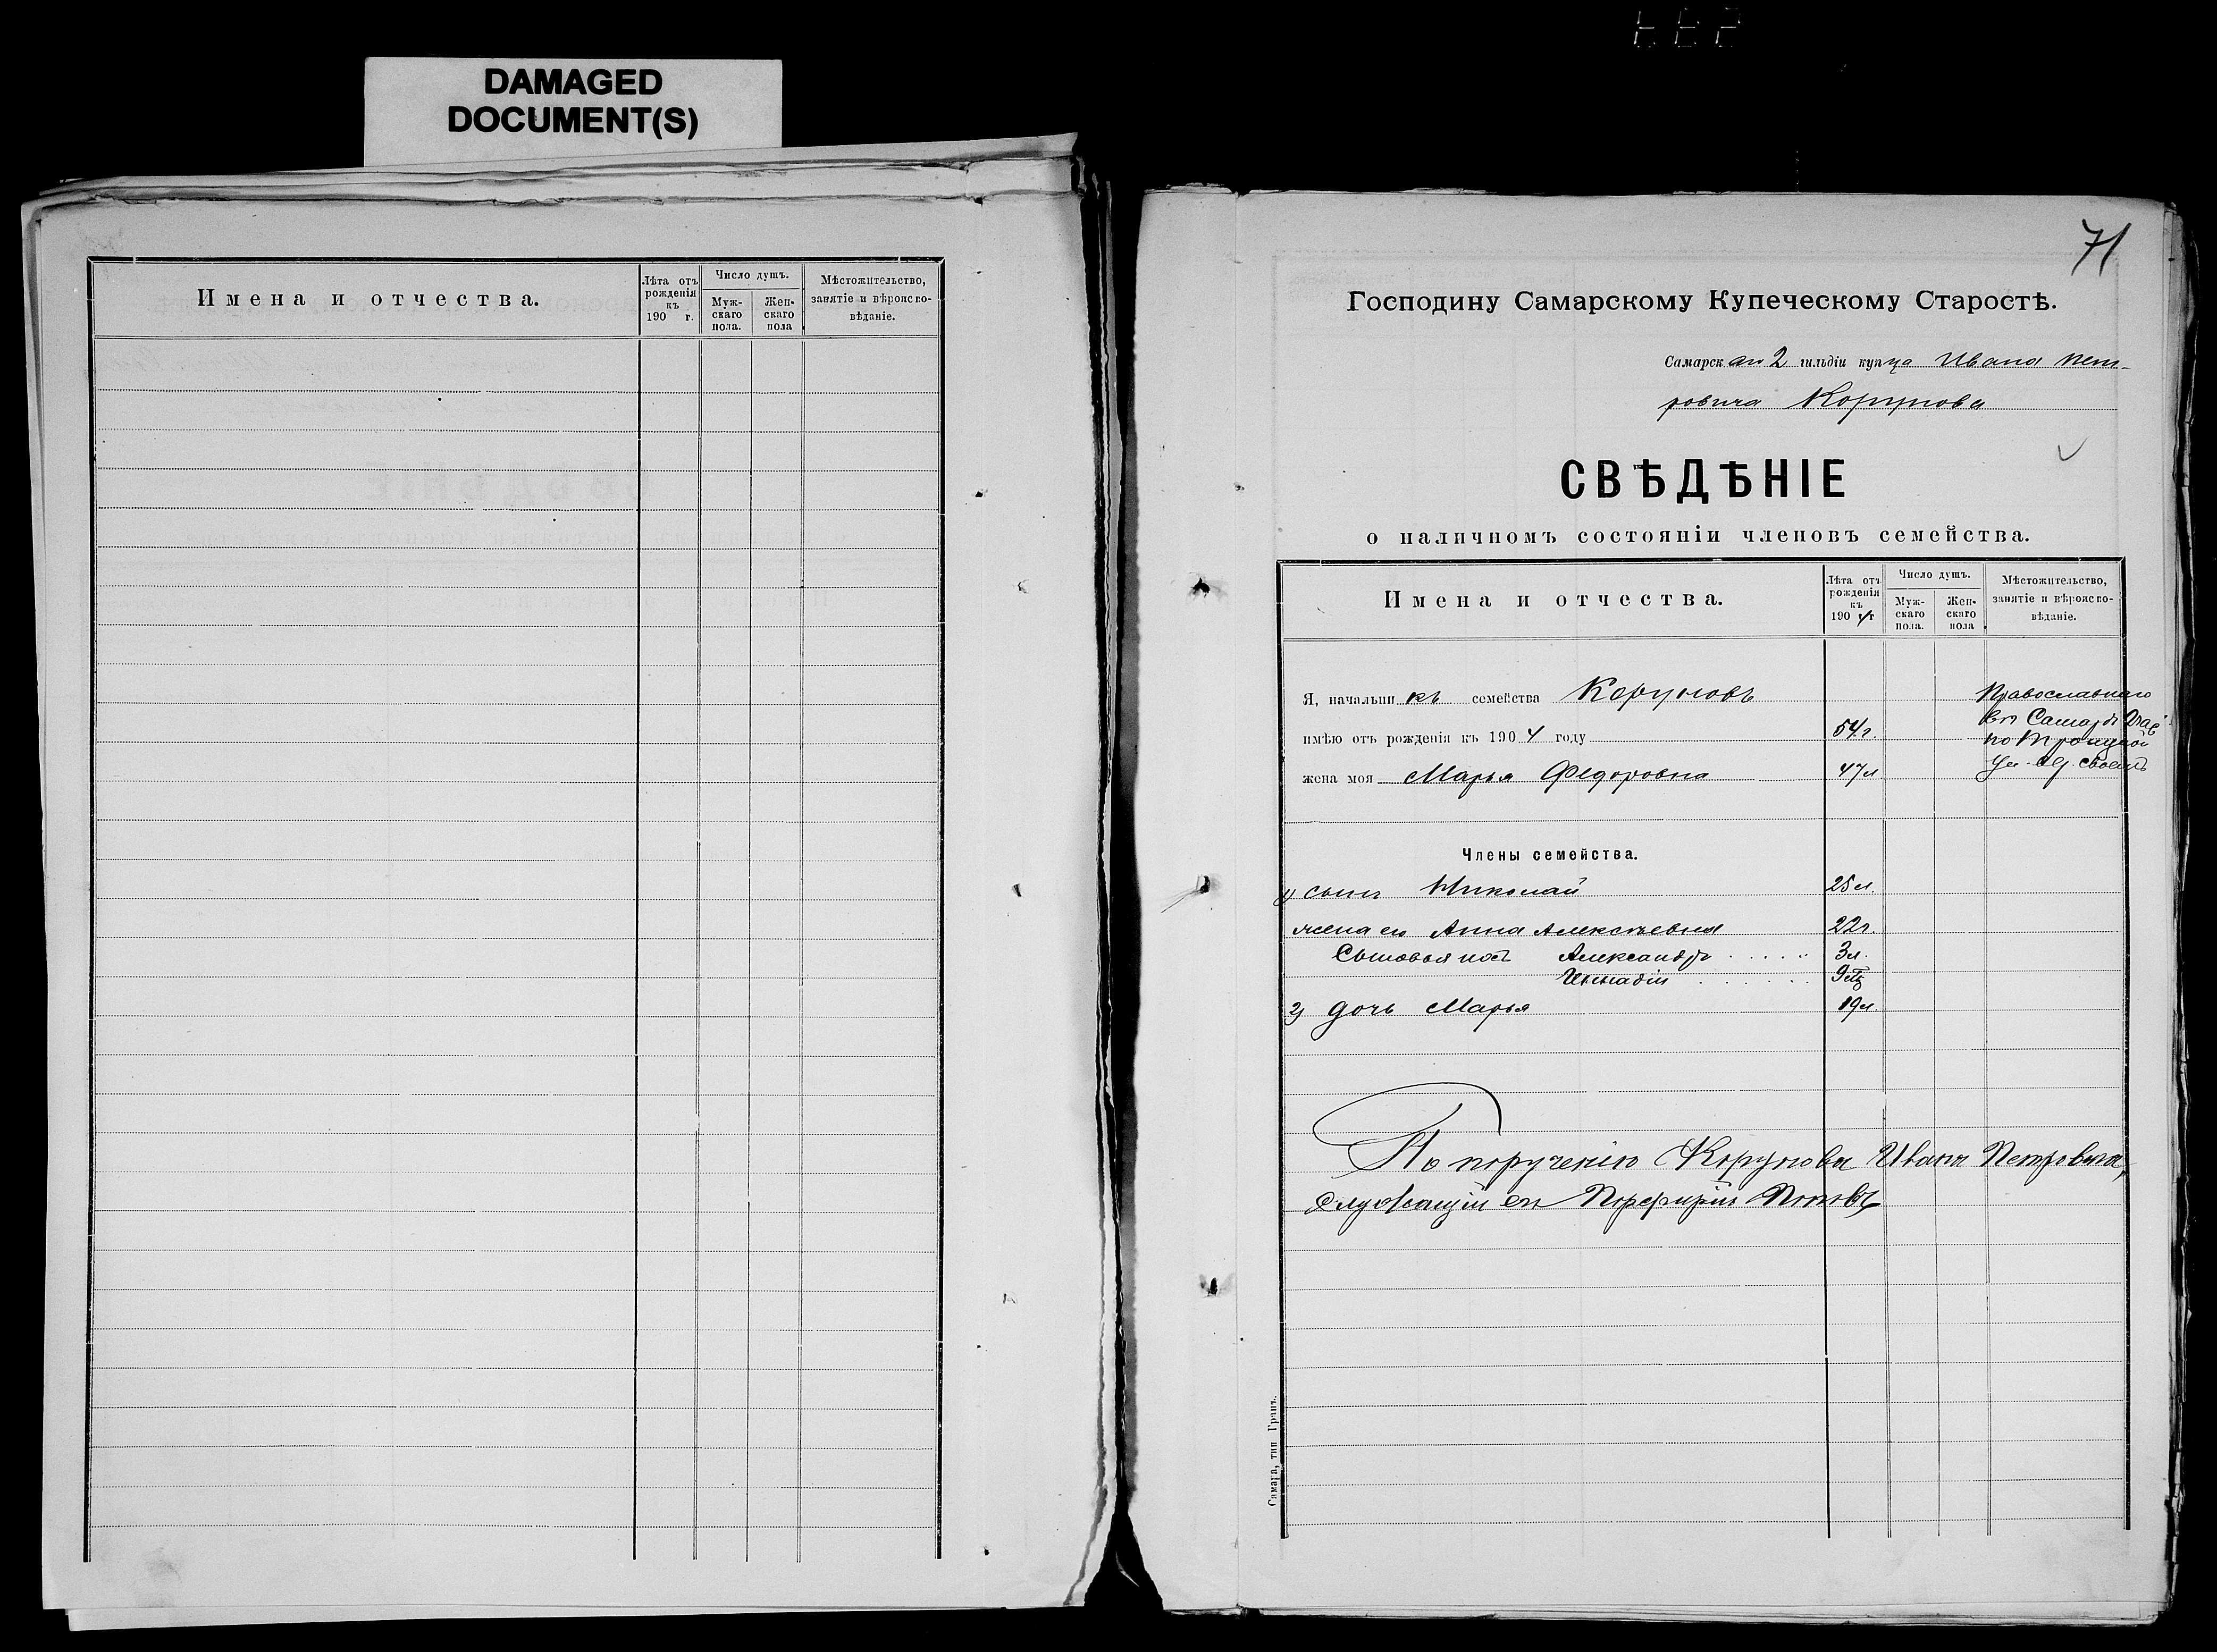 DAMAGED
DOCUMENT(S)
Имена и отчества.
Лѣта отъ рожденія къ 190 г.
Число душъ.
Муж-скаго пола.
Жен-скаго пола
Мѣстожительство, занятіе и вѣроиспо-вѣданіе.
71
Господину Самарскому Купеческому Старостѣ.
Самарскаго 2 гильдіи купца Ивана Пет-
ровича Корунова
СВѢДѢНІЕ
о наличномъ состояніи членовъ семейства.
Имена и отчества.
Лѣта отъ рожденія къ 1904 г
Число душъ.
Муж-скаго пола.
Жен-скаго пола
Мѣстожительство, занятіе и вѣроиспо-вѣданіе.
Я, начальникъ семейства Коруновъ
Православнаго
имѣю отъ рожденія къ 1904 году 54 г.
въ Самарѣ
по Троицкой
жена моя Марья Федоровна 47 л
ул. свояго
Члены семейства.
1) сынъ Николай 25 л.
жена его Анна Алексѣевна 22 г.
Сыновья ихъ Александръ 3 л.
Генадій 9 мц
2) дочь Марья 19 л.
По порученію Корунова Ивана Петровича,
Служащій его Порфирій Поповъ
Самара, тип Гранъ.